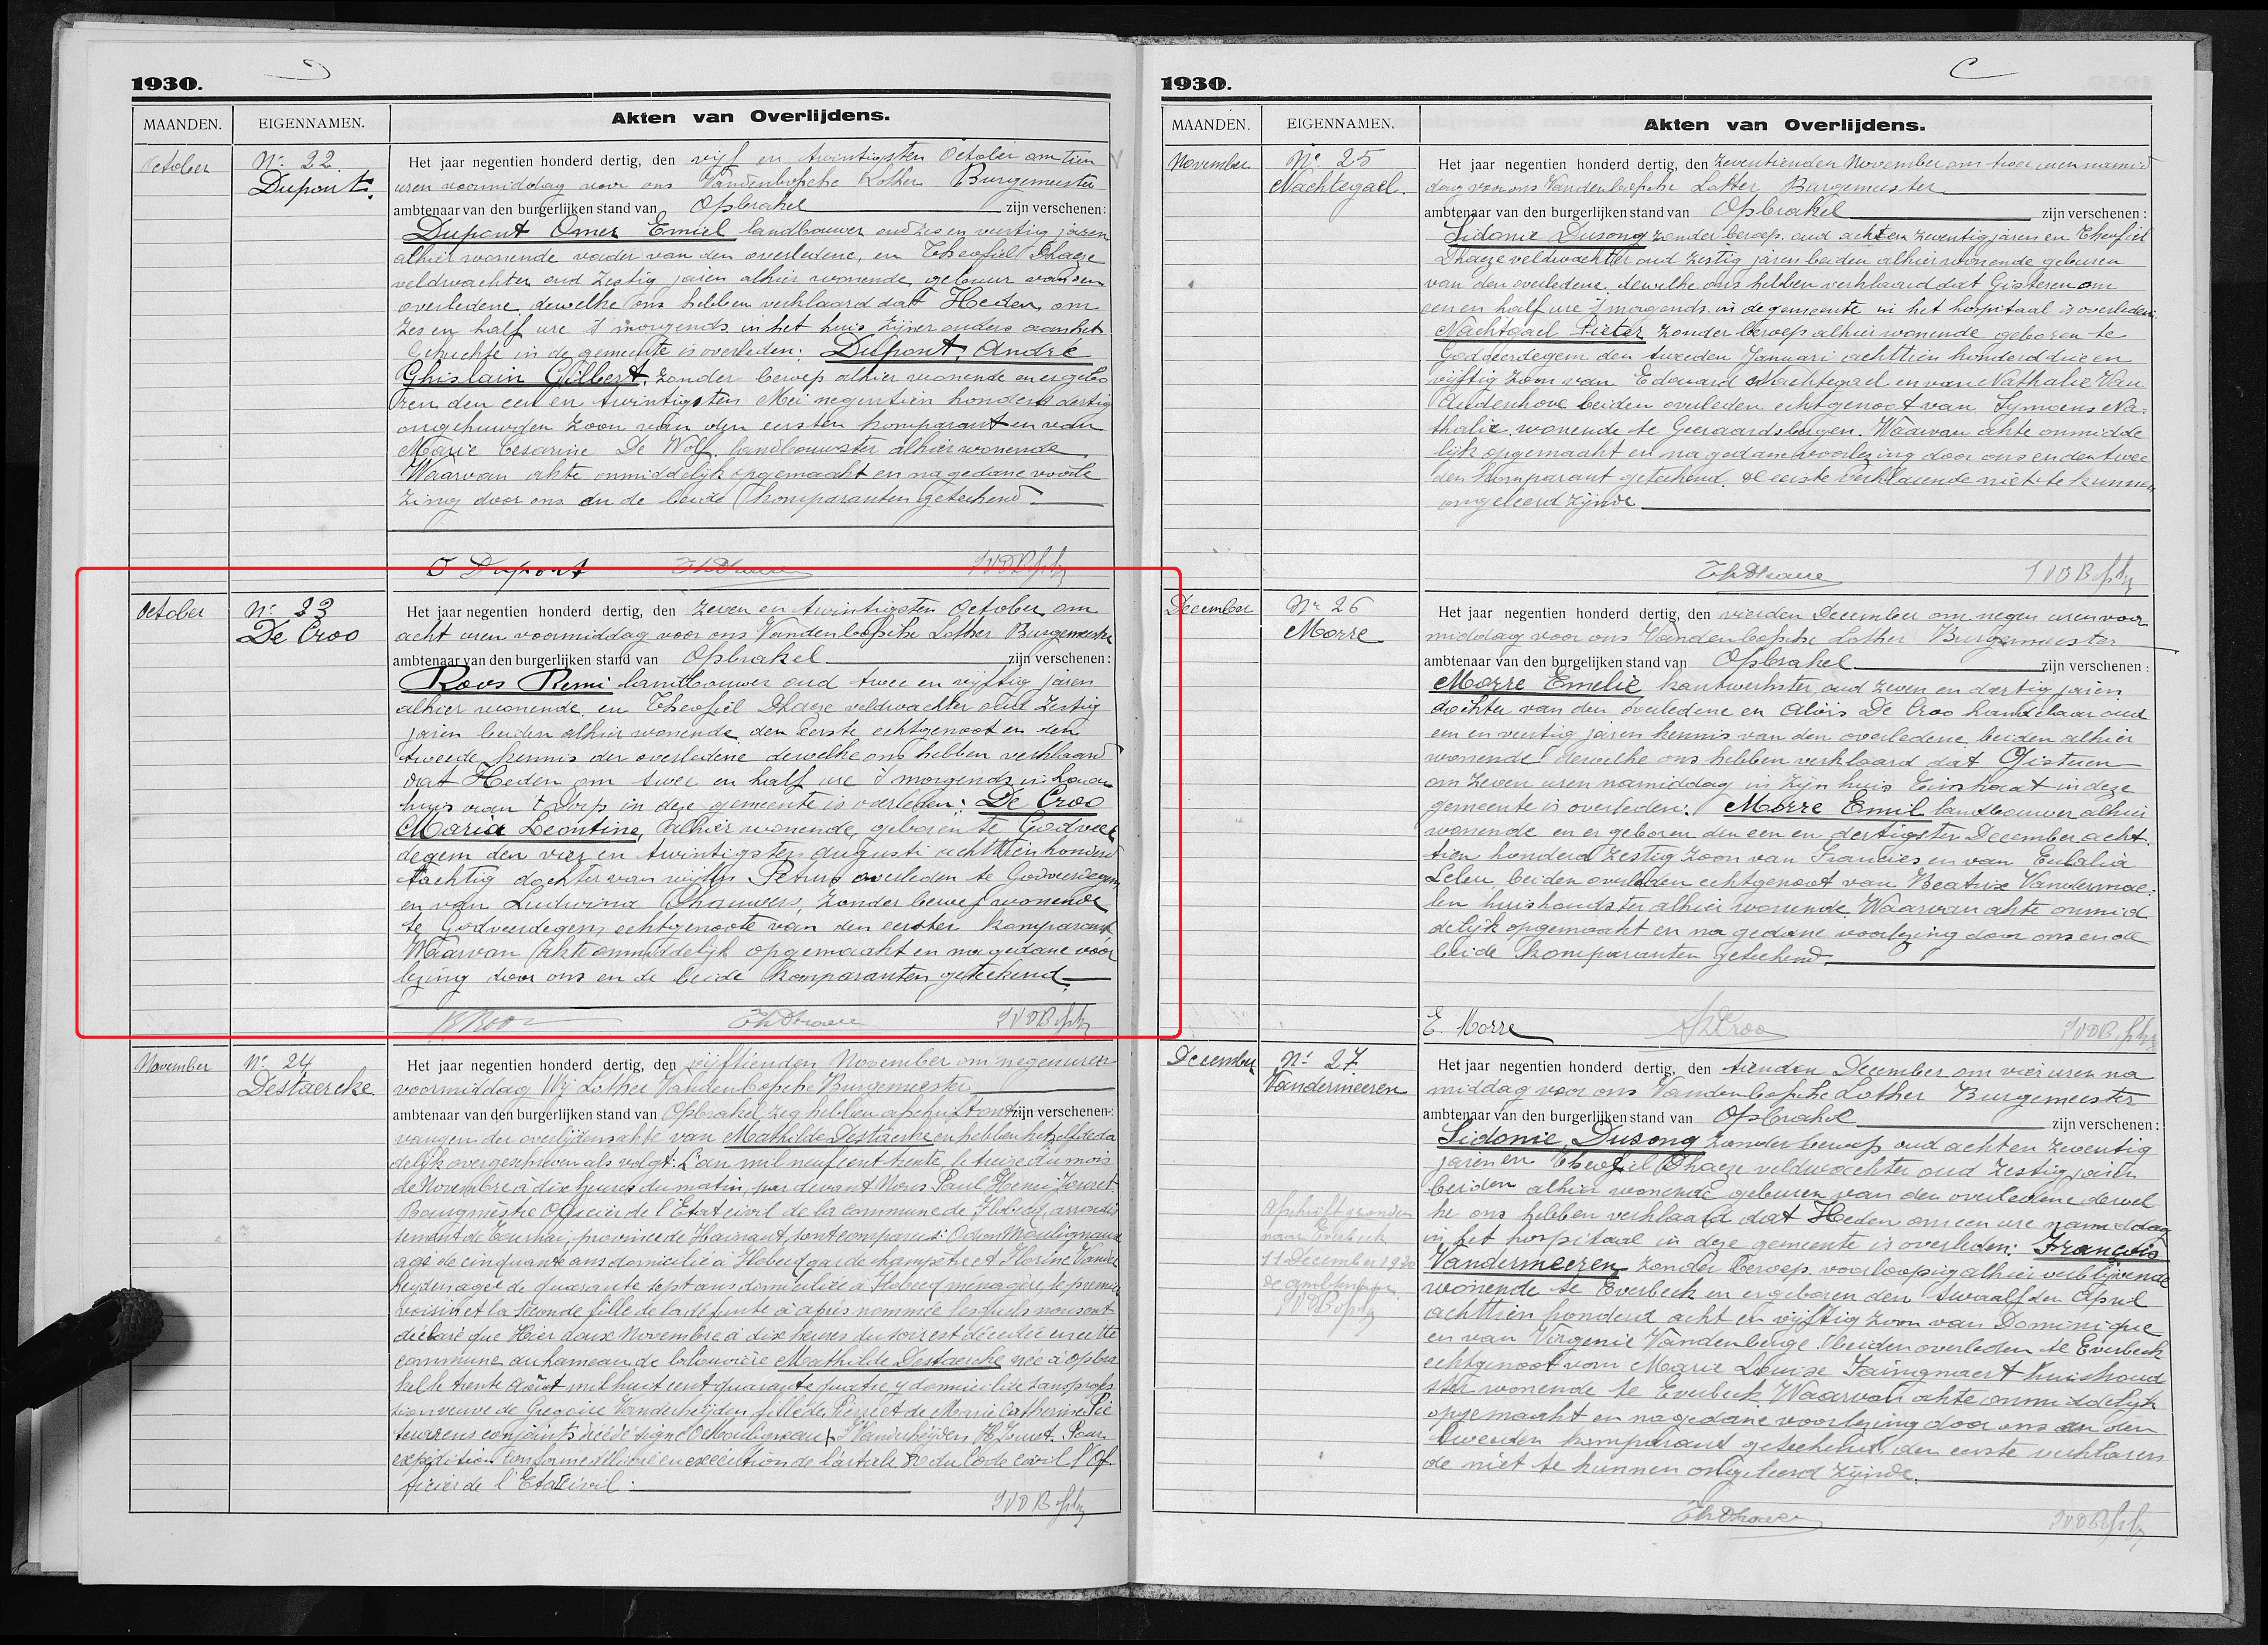 1930.
MAANDEN.
EIGENNAMEN.
Akten van Overlijdens.
October
N: 22
Dupont.
Het jaar negentien honderd dertig, den vijf en twintigsten October om tien
uren voormiddag voor ons Vandenbossche Lother Burgemeester
ambtenaar van den burgerlijken stand van Opbrakel zijn verschenen:
Dupont Omer Emiel landbouwer oud zes en veertig jaren
alhier wonende vader van den overledene, en Theofiel Dhaeze
veldwachter oud zestig jaren alhier wonende gebuur van den
overledene dewelke ons hebben verklaard dat Heden om
zes en half ure 's morgends in het huis zijner ouders aan het
Gehuchte in de gemeente is overleden: Dupont, André
Ghislain Gilbert, zonder beroep alhier wonende en er gebo
ren den een en twintigsten Mei negentien honderd dertig
ongehuwden zoon van den eersten komparant en van
Marie Cesarine De Wolf landbouwster alhier wonende.
Waarvan akte onmiddelijk opgemaakt en na gedane voorle
zing door ons en de beide komparanten geteekend.
O Dupont ThDhaeze
October
N: 23
De Croo
Het jaar negentien honderd dertig, den zeven en twintigsten October om
acht uren voormiddag voor ons Vandenbossche Lother Burgemeester
ambtenaar van den burgerlijken stand van Opbrakel zijn verschenen:
Roos Remi landbouwer oud twee en vijftig jaren
alhier wonende en Theofiel Dhaeze veldwachter oud zestig
jaren beiden alhier wonende den eerste echtgenoot en den
tweede kennis der overledene dewelke ons hebben verklaard
dat Heden om twee en half ure 's morgends in haar
huis van 't Dorp in deze gemeente is overleden: De Croo
Maria Leontine, alhier wonende, geboren te Godveer
degem den vier en twintigsten Augusti achttien honderd
tachtig dochter van wijlen Petrus overleden te Godveerdegem
en van Ludwina Schauwers, zonder beroep wonende
te Godveerdegem echtgenoote van den eersten komparant
Waarvan akte onmiddelijk opgemaakt en na gedane voor
lezing door ons en de beide komparanten geteekend.
R Roos ThDhaeze
November
N: 24
Destaercke
Het jaar negentien honderd dertig, den vijftienden November om negen uren
voormiddag Wij Lother Vandenbossche Burgemeester
ambtenaar van den burgerlijken stand van Opbrakel, zeg hebben afschrift ont zijn verschenen:
vangen der overlijdensakte van Mathilde Destaercke en hebben hetzelfde da
delijk overgeschreven als volgt: L'an mil neuf cent trente, le treize du mois
de Novembre à dix heures du matin, par devant Nous Paul Henri Jouret
Bourgmestre Officier de l'Etat civil de la commune de Flobecq, arrondis
sement de Tournai, province de Hainaut, sont comparus: Odon Moulignaux
agé de cinquante ans domicilié à Flobecq garde champêtre et Florine Vander
heyden agée de quarante sept ans domiciliée à Flobecq ménagère, le premier
voisin et la seconde fille de la défunte ci après nommée lesquels nous ont
déclaré que Hier douze Novembre à dix heures du soir est décédée en cette
commune au hameau de la Louvière Mathilde Destaercke née à Opbra
kel le trente Août mil huit cent quarante quatre y domiciliée sans profes
sion veuve de Gregoire Vanderheyden fille de Pierre et de Marie Catherine
conjoints décédés
expédition conforme délivrée en exécution de l'article 80 du Code civil l'Of
ficier de l'Etat civil:
1930.
MAANDEN.
EIGENNAMEN.
Akten van Overlijdens.
November
N: 25
Nachtegael.
Het jaar negentien honderd dertig, den zeventienden November om twee uren namid
dag voor ons Vandenbossche Lother Burgemeester
ambtenaar van den burgerlijken stand van Opbrakel zijn verschenen:
Sidonie Dusong zonder beroep oud acht en zeventig jaren en Theofiel
Dhaeze veldwachter oud zestig jaren beiden alhier wonende geburen
van den overledene, dewelke ons hebben verklaard dat Gisteren om
een en half ure 's morgends in de gemeente in het hospitaal is overleden:
Nachtgael Pieter zonder beroep alhier wonende geboren te
Godveerdegem den tweeden Januari achttien honderd drie en
vijftig zoon van Edouard Nachtegael en van Nathalie Van
Audenhove beiden overleden echtgenoot van Symoens Na:
thalie wonende te Geeraardsbergen. Waarvan akte onmidde
lijk opgemaakt en na gedane voorlezing door ons en den twee
den komparant geteekend, de eerste verklarende niet te kunnen
ongeleerd zijnde
ThDhaeze
December
N: 26
Morre
Het jaar negentien honderd dertig, den vierden December om negen uren voor
middag voor ons Vandenbossche Lother Burgemeester
ambtenaar van den burgelijken stand van Opbrakel zijn verschenen:
Morre Emelie kantwerkster oud zeven en dertig jaren
dochter van den overledene en Aloïs De Croo handelaar oud
een en veertig jaren kennis van den overledene beiden alhier
wonende dewelke ons hebben verklaard dat Gisteren
om zeven uren namiddag in zijn huis in deze
gemeente is overleden: Morre Emil landbouwer alhier
wonende en er geboren den een en dertigsten December acht
tien honderd zestig zoon van Francies en van Eulalia
Leleu beiden overleden echtgenoot van Beatrix Vandermae:
len huishoudster alhier wonende Waarvan akte onmid
delijk opgemaakt en na gedane voorlezing door ons en de
beide komparanten geteekend.
E. Morre ADCroo
December
N: 27
Vandermeeren
Het jaar negentien honderd dertig, den tienden December om vier uren na
middag voor ons Vandenbossche Lother Burgemeester
ambtenaar van den burgerlijken stand van Opbrakel zijn verschenen:
Sidonie Dusong zonder beroep oud acht en zeventig
jaren en Theofiel Dhaeze veldwachter oud zestig jaren
beiden alhier wonende geburen van den overledene dewel
ke ons hebben verklaard dat Heden om een ure namiddag
in het hospitaal in deze gemeente is overleden: François
Vandermeeren zonder beroep voorloopig alhier verblijvende
wonende te Everbeek en er geboren den twaalfden April
achttien honderd acht en vijftig zoon van Dominique
en van Virgenie Vandenberge beiden overleden te Everbeek
echtgenoot van Marie Louise huishoud
ster wonende te Everbeek Waarvan akte onmiddelijk
opgemaakt en na gedane voorlezing door ons en den
tweeden komparant geteekend den eerste verklaren
de niet te kunnen ongeleerd zijnde.
Afschrift gezonden
naar Everbeek
11 December 1930
de ambtenaar
ThDhaeze